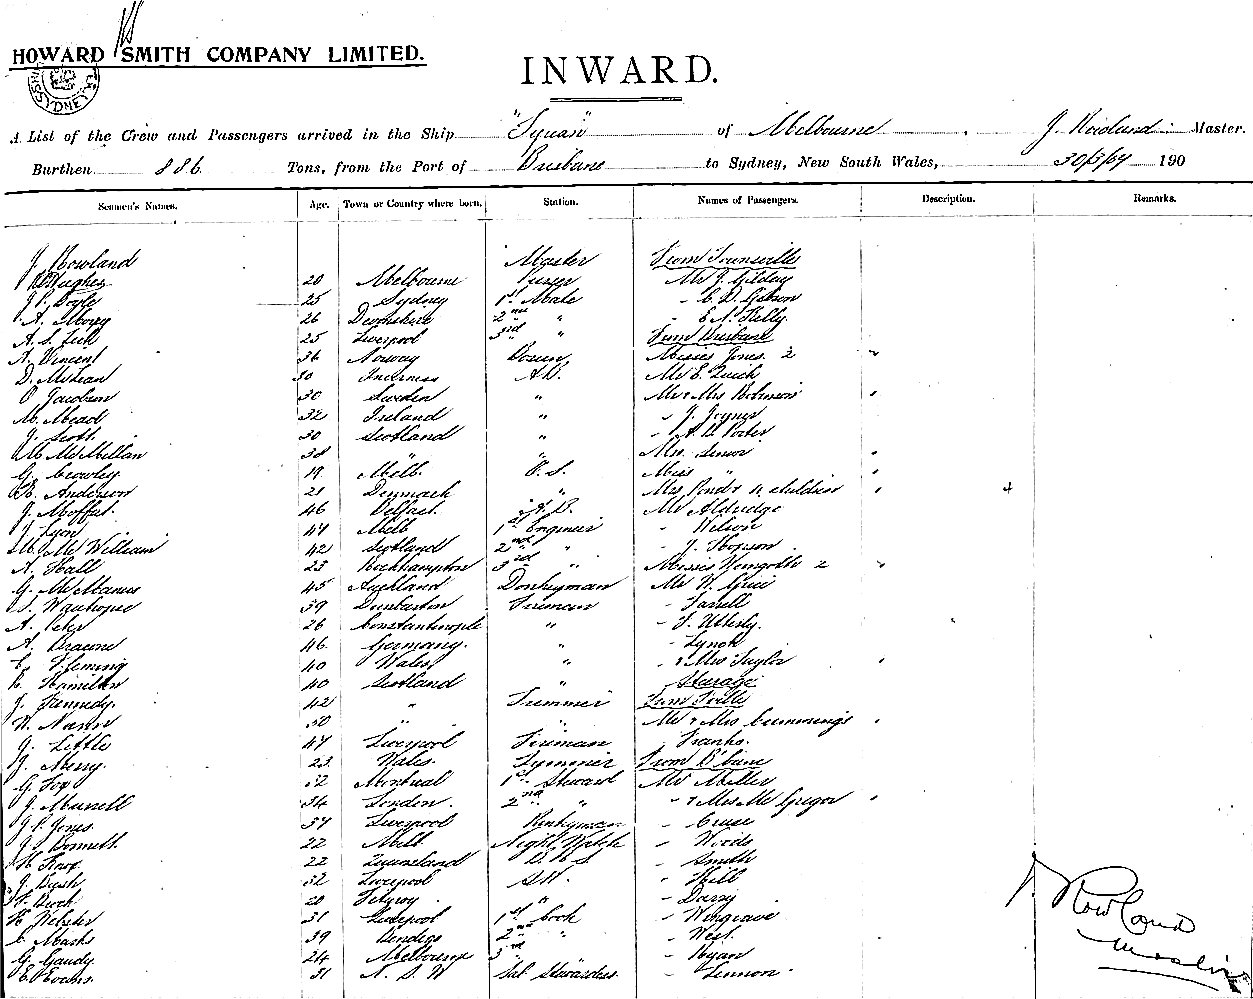 HOWARD SMITH COMPANY LIMITED.
INWARD.
A List of the Crew and Passengers arrived in the Ship "Tyrian" of Melbourne, J. Rowland Master.
Burthen 886 Tons, from the Port of Brisbane to Sydney, New South Wales, 190
Seamen's Names. Age. Town or Country where born. Station. Names of Passengers. Description. Remarks.
J. Rowland Master From Townsville
Hughes 20 Melbourne Purser Mr J. Gilday
J. P. Doyle 25 Sydney 1st Mate " C. D.
A. 26 Devonshire 2nd " " E. N. Kelly
A. S. 25 Liverpool 3rd " From Brisbane
A. Vincent 36 Norway Bosun Misses Jones 2 "
D. McLean 30 Inverness A.B. Mr E.
Jacobson 30 Sweden " Mr & Mrs Robinson "
M. Mead 32 Ireland " " J. Joyner
J. Scott 30 Scotland " " Porter
M. McMillan 38 " " Mrs. Senior "
G. Crowley 19 Melb. O.S. Miss " "
R. Anderson 21 Denmark " Mrs & children " +
J. Moffat 46 Belfast A.B. Mr Aldridge
Lyon 47 Melb 1st Engineer " Wilson
McWilliam 42 Scotland 2nd " " J. Hopson
A. Hall 23 Rockhampton 3rd " Misses 2 "
G. McManus 45 Auckland Donkeyman Mr W.
S. Wauhope 39 Dunbarton Fireman " Farrell
A. Peter 26 Constantinople " "
A. Braune 46 Germany. " " Lynch
Fleming 40 Wales " " & Mrs Taylor "
Hamilton 40 Scotland " Steerage
J. Kennedy 42 " Trimmer From T'ville
W. Nann 50 " " Mr & Mrs Cummings "
J. Little 47 Liverpool Fireman " Franks.
J. Merry 23 Wales. Trimmer From B'bane
G. Fox 52 Montreal 1st Steward Mr Miller
J. Munell 34 London. 2nd " " & Mrs McGregor "
J. P. Jones 37 Liverpool Pantryman " Cruse
J. S. Bonnett 22 Melb Night Watch " Woods
H. Knox 22 Queensland " Smith
J. Bush 32 Liverpool " Hill
Birch 20 Fitzroy " "
H. Webster 31 Liverpool 1st Cook " Wingrave
C. Marks 39 Bendigo 2nd " " West.
G. Gandy 24 Melbourne 3rd " Ryan
E. Evans 31 N. S. W Sal Stewardess " Lennon
J Rowland
Master